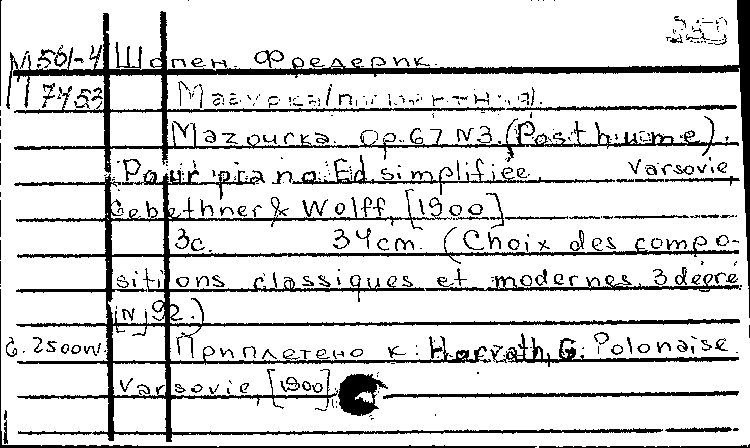 М 561-4 Шопен Фредерик.
7453 Мазурка (посмертная).
Mazourka Op. 67 N3. (Posthume).
Pour piano. Ed. simplifiée. Varsovie,
Gebethner & Wolff, [1900]
3с. 34 cm. (Choix des compo-
sitions classiques et modernes. 3 degré
[N] 92.)
Приплетено к: Horvath, G. Polonaise
Varsovie, [1900]